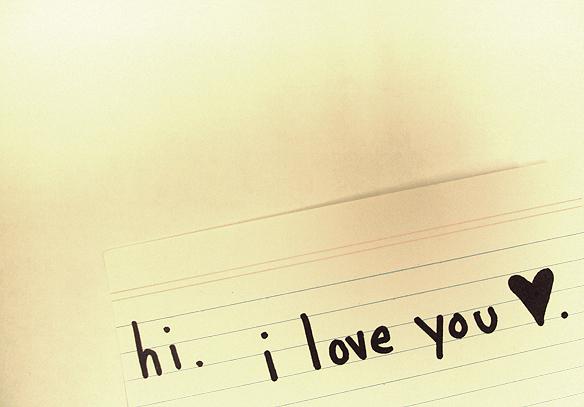 hi. i love you ♥.